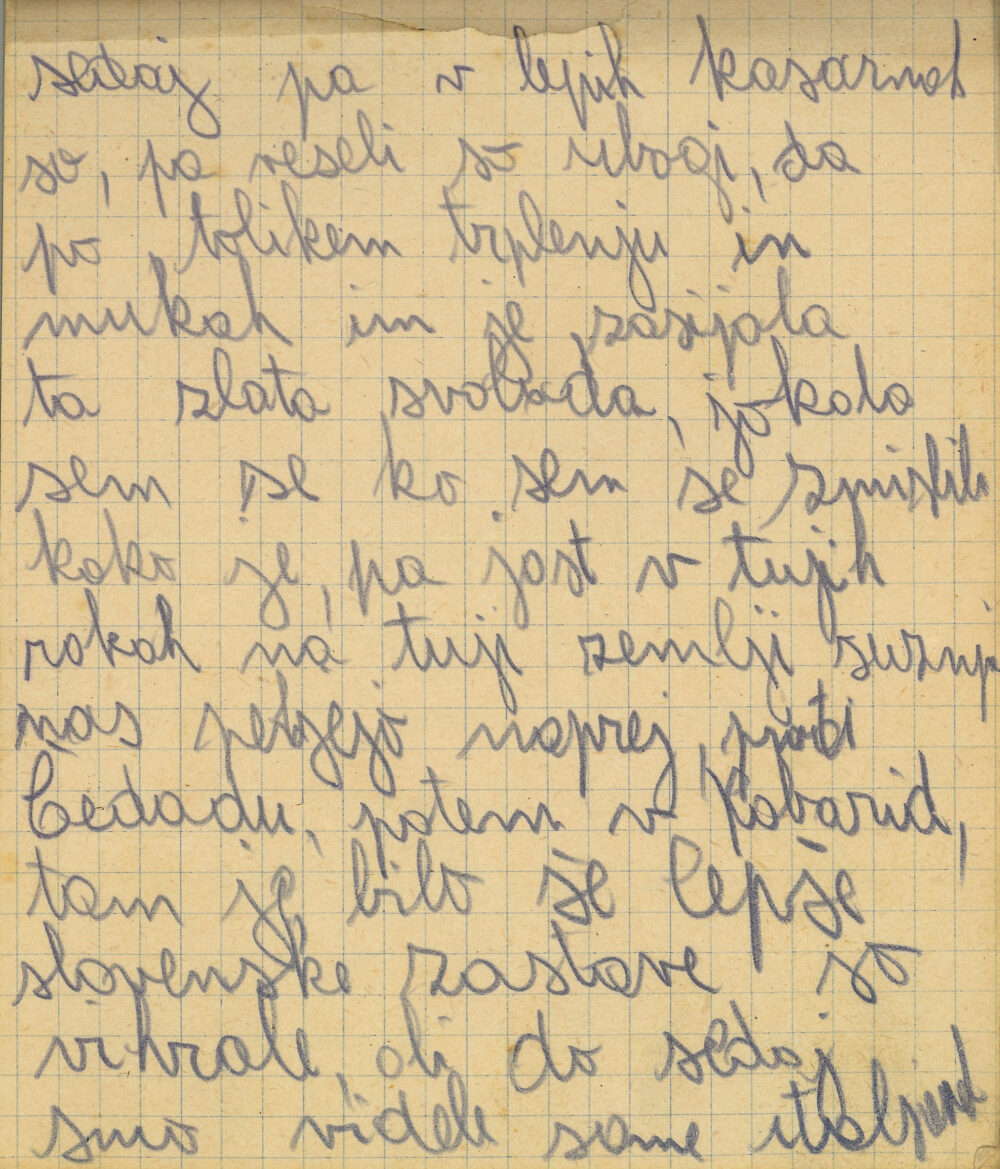 sedaj pa v lepih kasarnah
so, pa veseli so ubogi, da
po tolikem trplenju in
mukah im je zasijala
ta zlata svoboda, jokala
sem se ko sem se zmislila
kako je, pa jast v tujih
rokah na tuji zemlji
nas peljejo naprej, proti
Čedadu, potem v Kobarid,
tam je bilo še lepše
slovenske zastave so
vihrale, ali do sedaj
smo videle same